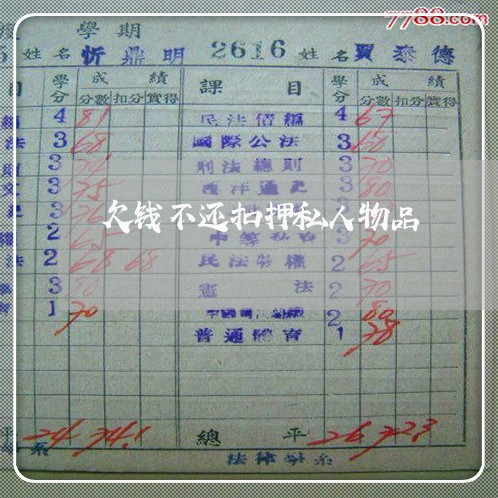 7788.com
學期
姓名 忻鼎明 2616 姓名 賈泰德
目 學分 成績 課目 學分 成績
分數 扣分 實得 分數 扣分 實得
4 81 民法債編 4 67
法 3 68 國際公法 3 60
則 3 刑法總則 3 70
文 3 75 西洋通史 3 80
史 3 3
2 65 3 70
法 2 68 68 民法物權 2 65
3 80 憲法 2 70
1 70 2 80
普通體育 1 78
欠钱不还扣押私人物品
平 24 74.1 總平 26 72.3
系 法律學系